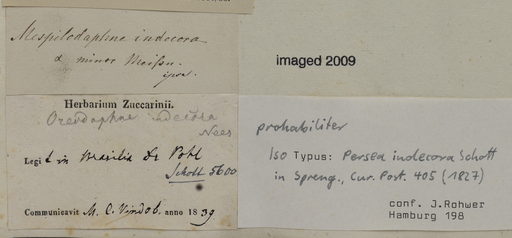 Mespilodaphne indecora
α minor Meissn.
ipse.
imaged 2009
Herbarium Zuccarinii.
Oreodaphne indecora
Nees
Legit in Brasilia Dr Pohl
Schott 5600
Communicavit M. C. Vindob. anno 1839
probabiliter
Iso Typus: Persea indecora Schott
in Spreng., Cur. Post. 405 (1827)
conf. J. Rohwer
Hamburg 198